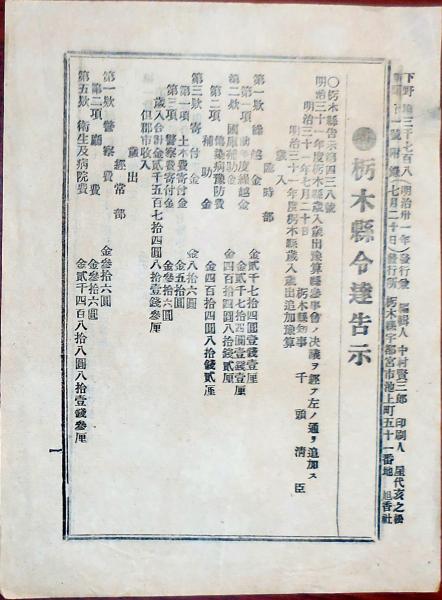 下野新聞三千七百八號附錄明治卅一年七月二十日發行
編輯人 中村賢三郎 印刷人 屋代亥之松
發行所 栃木縣宇都宮市池上町五十一番地 旭香社
栃木縣令達告示
〇栃木縣告示第四三八號
明治三十一年度栃木縣歲入歲出豫算縣參事會ノ決議ヲ經テ左ノ通リ追加ス
明治三十一年七月二十日 栃木縣知事 千頭清臣
明治三十一年度栃木縣歲入歲出追加豫算
歲入
臨時部
第一欵 繰越金 金貳千七拾四圓壹錢壹厘
第一項 前年度繰越金 金貳千七拾四圓壹錢壹厘
第二欵 國庫補助金 金四百拾四圓八拾錢貳厘
第一項 傳染病豫防費補助金 金四百拾四圓八拾錢貳厘
第三欵 寄付金 金八拾六圓
第一項 土木費寄付金 金五拾圓
第三項 警察費寄付金 金參拾六圓
歲入合計金貳千五百七拾四圓八拾壹錢參厘
但郡市收入
歲出
經常部
第一欵 警察費 金參拾六圓
第二項 廳費 金參拾六圓
第五欵 衞生及病院費 金貳千四百八拾八圓八拾壹錢參厘
一